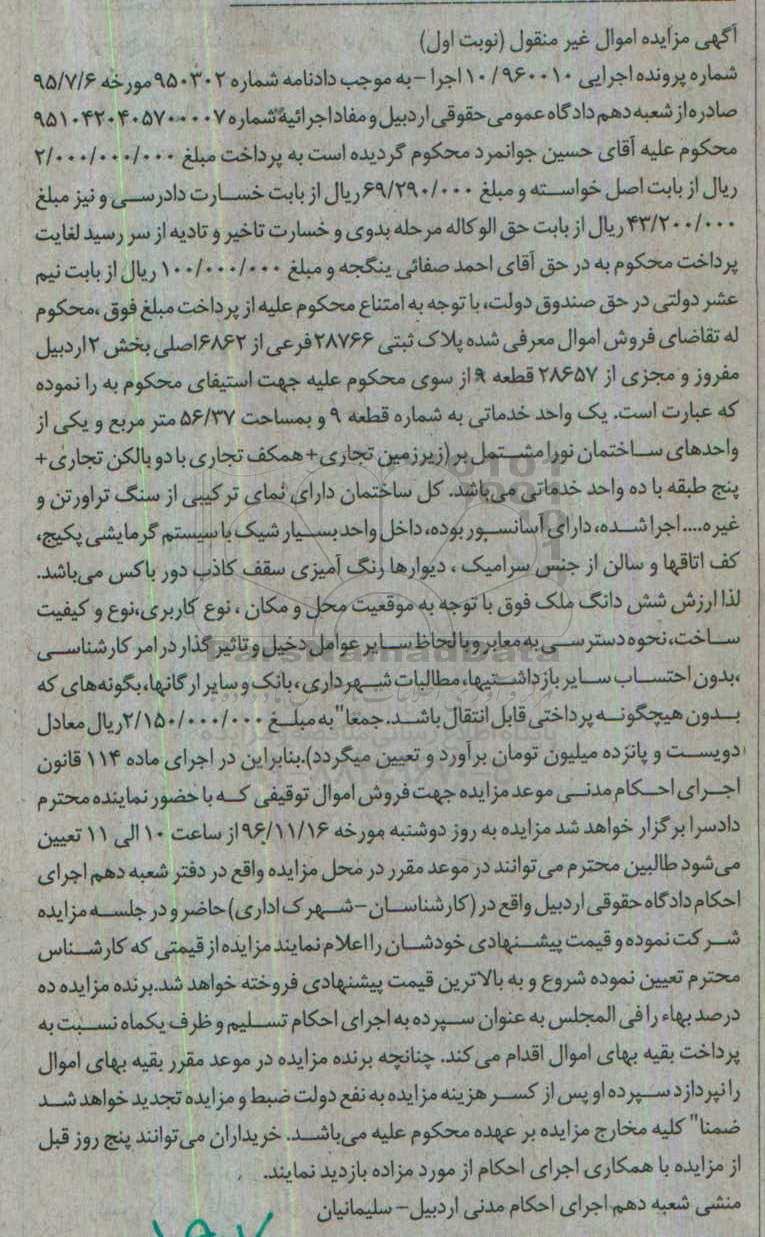 آگهی مزایده اموال غیر منقول (نوبت اول)
شماره پرونده اجرایی ۹۶۰۰۱۰/ ۱۰ اجرا – به موجب دادنامه شماره ۹۵۰۳۰۲ مورخه ۹۵/۷/۶
صادره از شعبه دهم دادگاه عمومی حقوقی اردبیل و مفاد اجرائیه شماره ۹۵۱۰۴۲۰۴۰۵۷۰۰۰۰۷
محکوم علیه آقای حسین جوانمرد محکوم گردیده است به پرداخت مبلغ ۲/۰۰۰/۰۰۰/۰۰۰
ریال از بابت اصل خواسته و مبلغ ۶۹/۲۹۰/۰۰۰ ریال از بابت خسارت دادرسی و نیز مبلغ
۴۳/۲۰۰/۰۰۰ ریال از بابت حق الوکاله مرحله بدوی و خسارت تاخیر و تادیه از سر رسید لغایت
پرداخت محکوم به در حق آقای احمد صفائی ینگجه و مبلغ ۱۰۰/۰۰۰/۰۰۰ ریال از بابت نیم
عشر دولتی در حق صندوق دولت، با توجه به امتناع محکوم علیه از پرداخت مبلغ فوق ،محکوم
له تقاضای فروش اموال معرفی شده پلاک ثبتی ۲۸۷۶۶ فرعی از ۶۸۶۲ اصلی بخش ۲ اردبیل
مفروز و مجزی از ۲۸۶۵۷ قطعه ۹ از سوی محکوم علیه جهت استیفای محکوم به را نموده
که عبارت است. یک واحد خدماتی به شماره قطعه ۹ و بمساحت ۵۶/۳۷ متر مربع و یکی از
واحدهای ساختمان نورا مشتمل بر (زیرزمین تجاری+ همکف تجاری با دو بالکن تجاری+
پنج طبقه با ده واحد خدماتی می‌باشد. کل ساختمان دارای نمای ترکیبی از سنگ تراورتن و
غیره.... اجرا شده، دارای آسانسور بوده، داخل واحد بسیار شیک با سیستم گرمایشی پکیج،
کف اتاقها و سالن از جنس سرامیک ، دیوارها رنگ آمیزی سقف کاذب دور باکس می‌باشد.
لذا ارزش شش دانگ ملک فوق با توجه به موقعیت محل و مکان ، نوع کاربری،نوع و کیفیت
ساخت، نحوه دسترسی به معابر و با لحاظ سایر عوامل دخیل و تاثیر گذار در امر کارشناسی
،بدون احتساب سایر بازداشتیها، مطالبات شهرداری ، بانک و سایر ارگانها، بگونه‌های که
بدون هیچگونه پرداختی قابل انتقال باشد. جمعا" به مبلغ ۲/۱۵۰/۰۰۰/۰۰۰ ریال معادل
دویست و پانزده میلیون تومان برآورد و تعیین میگردد).بنابراین در اجرای ماده ۱۱۴ قانون
اجرای احکام مدنی موعد مزایده جهت فروش اموال توقیفی که با حضور نماینده محترم
دادسرا برگزار خواهد شد مزایده به روز دوشنبه مورخه ۹۶/۱۱/۱۶ از ساعت ۱۰ الی ۱۱ تعیین
می‌شود طالبین محترم می‌توانند در موعد مقرر در محل مزایده واقع در دفتر شعبه دهم اجرای
احکام دادگاه حقوقی اردبیل واقع در (کارشناسان –شهرک اداری) حاضر و در جلسه مزایده
شرکت نموده و قیمت پیشنهادی خودشان را اعلام نمایند مزایده از قیمتی که کارشناس
محترم تعیین نموده شروع و به بالاترین قیمت پیشنهادی فروخته خواهد شد.برنده مزایده ده
درصد بهاء را فی المجلس به عنوان سپرده به اجرای احکام تسلیم و ظرف یکماه نسبت به
پرداخت بقیه بهای اموال اقدام می‌کند. چنانچه برنده مزایده در موعد مقرر بقیه بهای اموال
را نپردازد سپرده او پس از کسر هزینه مزایده به نفع دولت ضبط و مزایده تجدید خواهد شد
ضمنا" کلیه مخارج مزایده بر عهده محکوم علیه می‌باشد. خریداران می‌توانند پنج روز قبل
از مزایده با همکاری اجرای احکام از مورد مزاده بازدید نمایند.
منشی شعبه دهم اجرای احکام مدنی اردبیل – سلیمانیان